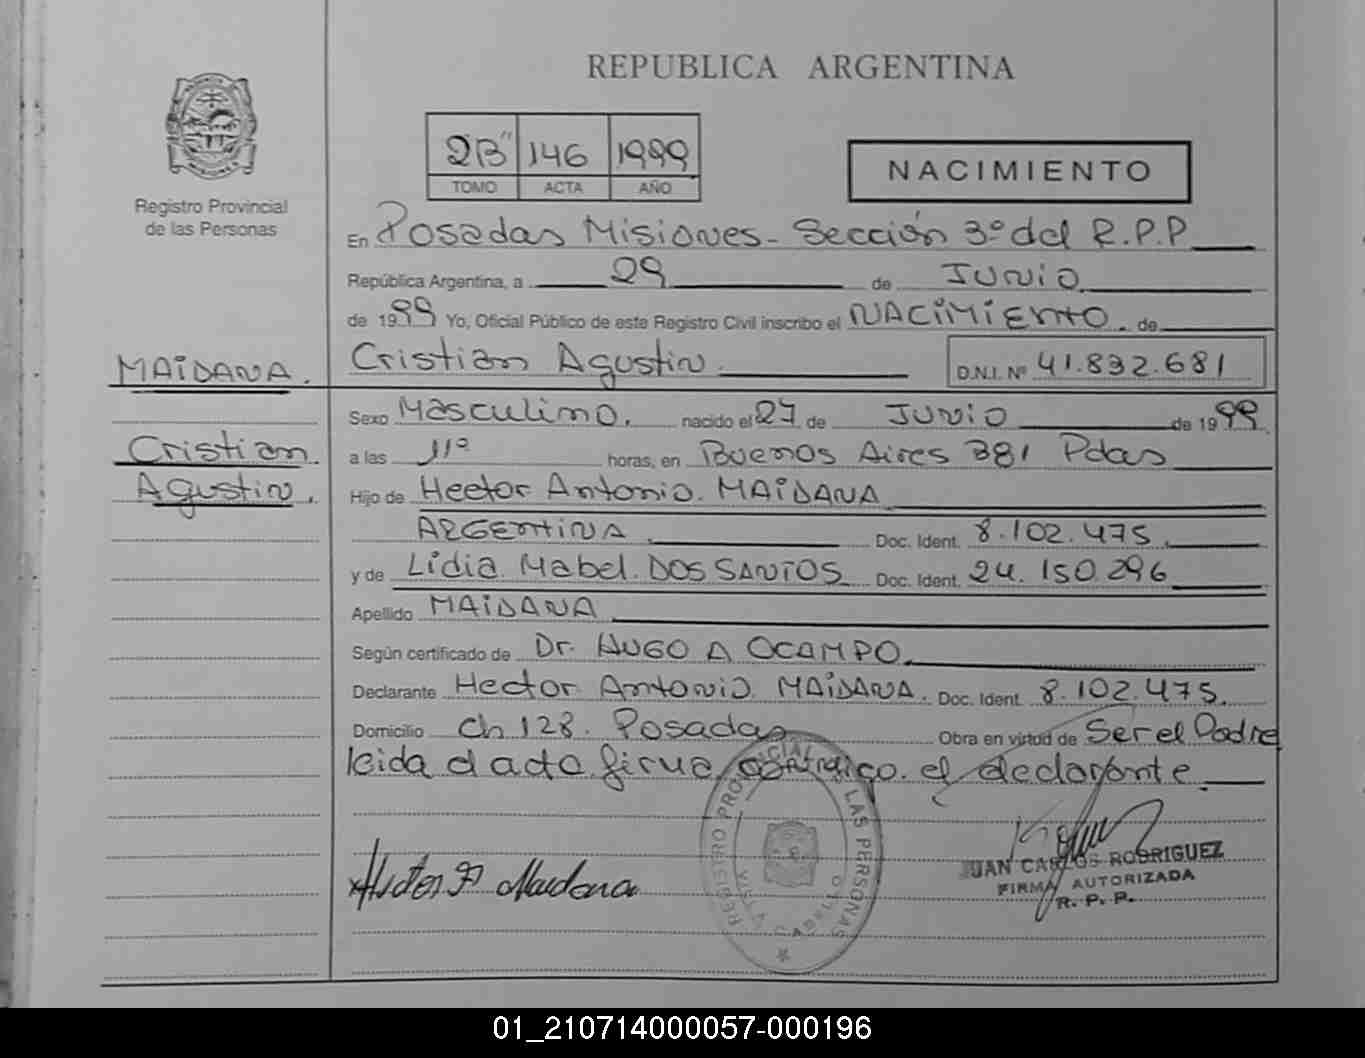 REPUBLICA ARGENTINA
2B" 146 1999
TOMO ACTA AÑO
NACIMIENTO
Registro Provincial
de las Personas
En Posadas Misiones - Sección 3º del R.P.P
República Argentina, a 29 de JUNIO
de 1999 Yo, Oficial Público de este Registro Civil inscribo el NACIMIENTO. de
MAIDANA.
Cristian Agustin D.N.I. Nº 41.832.681
Sexo Masculino. nacido el 27 de JUNIO de 1999
Cristian
Agustin.
a las 11º horas, en Buenos Aires 381 Pdas
Hijo de Hector Antonio. MAIDANA
ARGENTINA Doc. Ident. 8.102.475.
y de Lidia Mabel. DOS SANTOS Doc. Ident. 24.150.296
Apellido MAIDANA
Según certificado de Dr. HUGO A OCAMPO.
Declarante Hector Antonio MAIDANA. Doc. Ident. 8.102.475.
Domicilio Ch 128. Posadas Obra en virtud de Ser el Padre
leida el acta firma conmigo el declarante
REGISTRO PROVINCIAL DE LAS PERSONAS
JUAN CARLOS RODRIGUEZ
FIRMA AUTORIZADA
R. P. P.
01_210714000057-000196